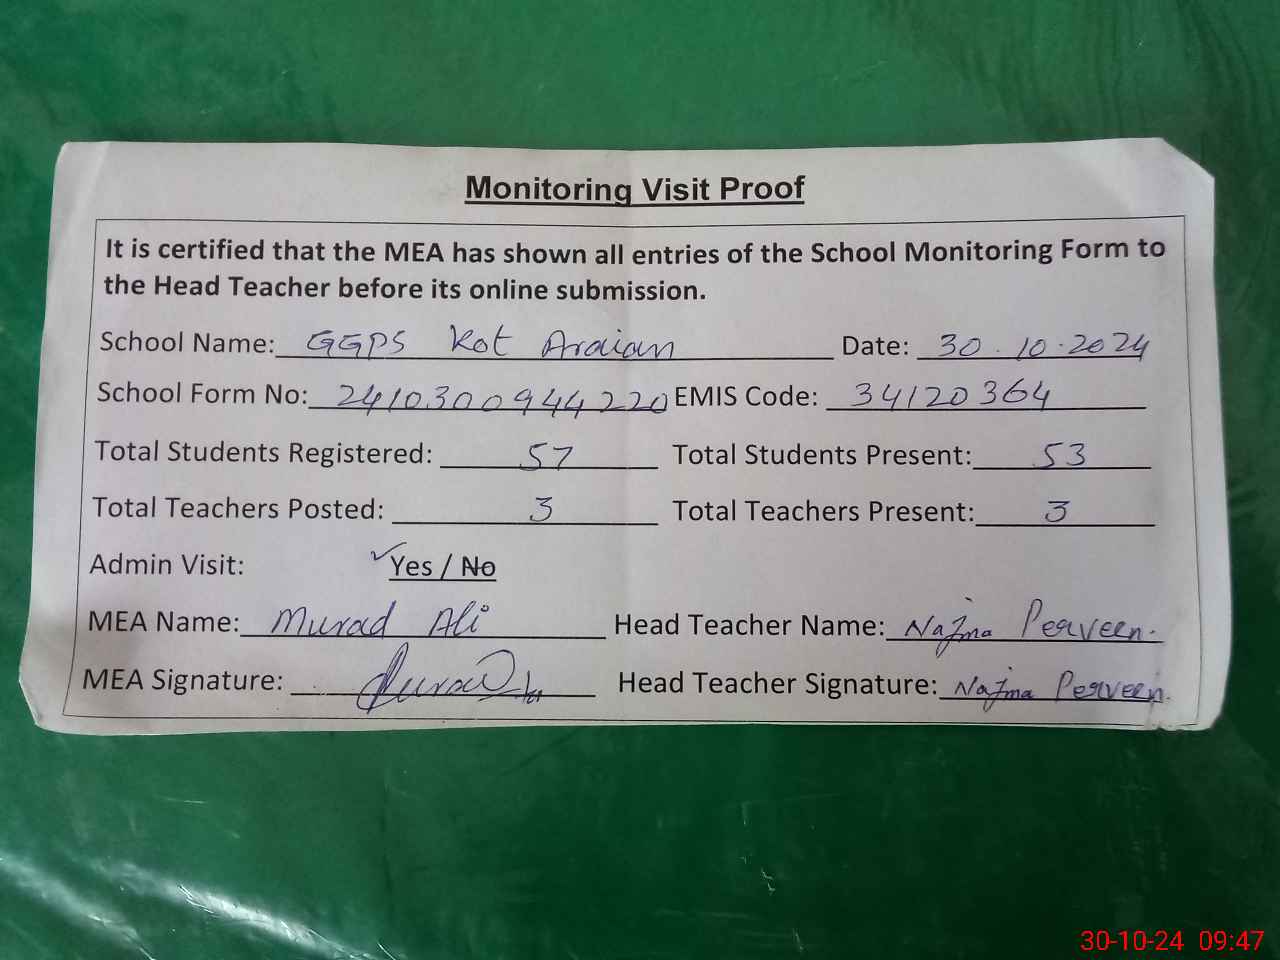 Monitoring Visit Proof
It is certified that the MEA has shown all entries of the School Monitoring Form to
the Head Teacher before its online submission.
School Name: GGPS Kot Araian Date: 30.10.2024
School Form No: 2410300944220 EMIS Code: 34120364
Total Students Registered: 57 Total Students Present: 53
Total Teachers Posted: 3 Total Teachers Present: 3
Admin Visit: ✓Yes / No
MEA Name: Murad Ali Head Teacher Name: Najma Perveen.
MEA Signature: Head Teacher Signature: Najma Perveen.
30-10-24 09:47